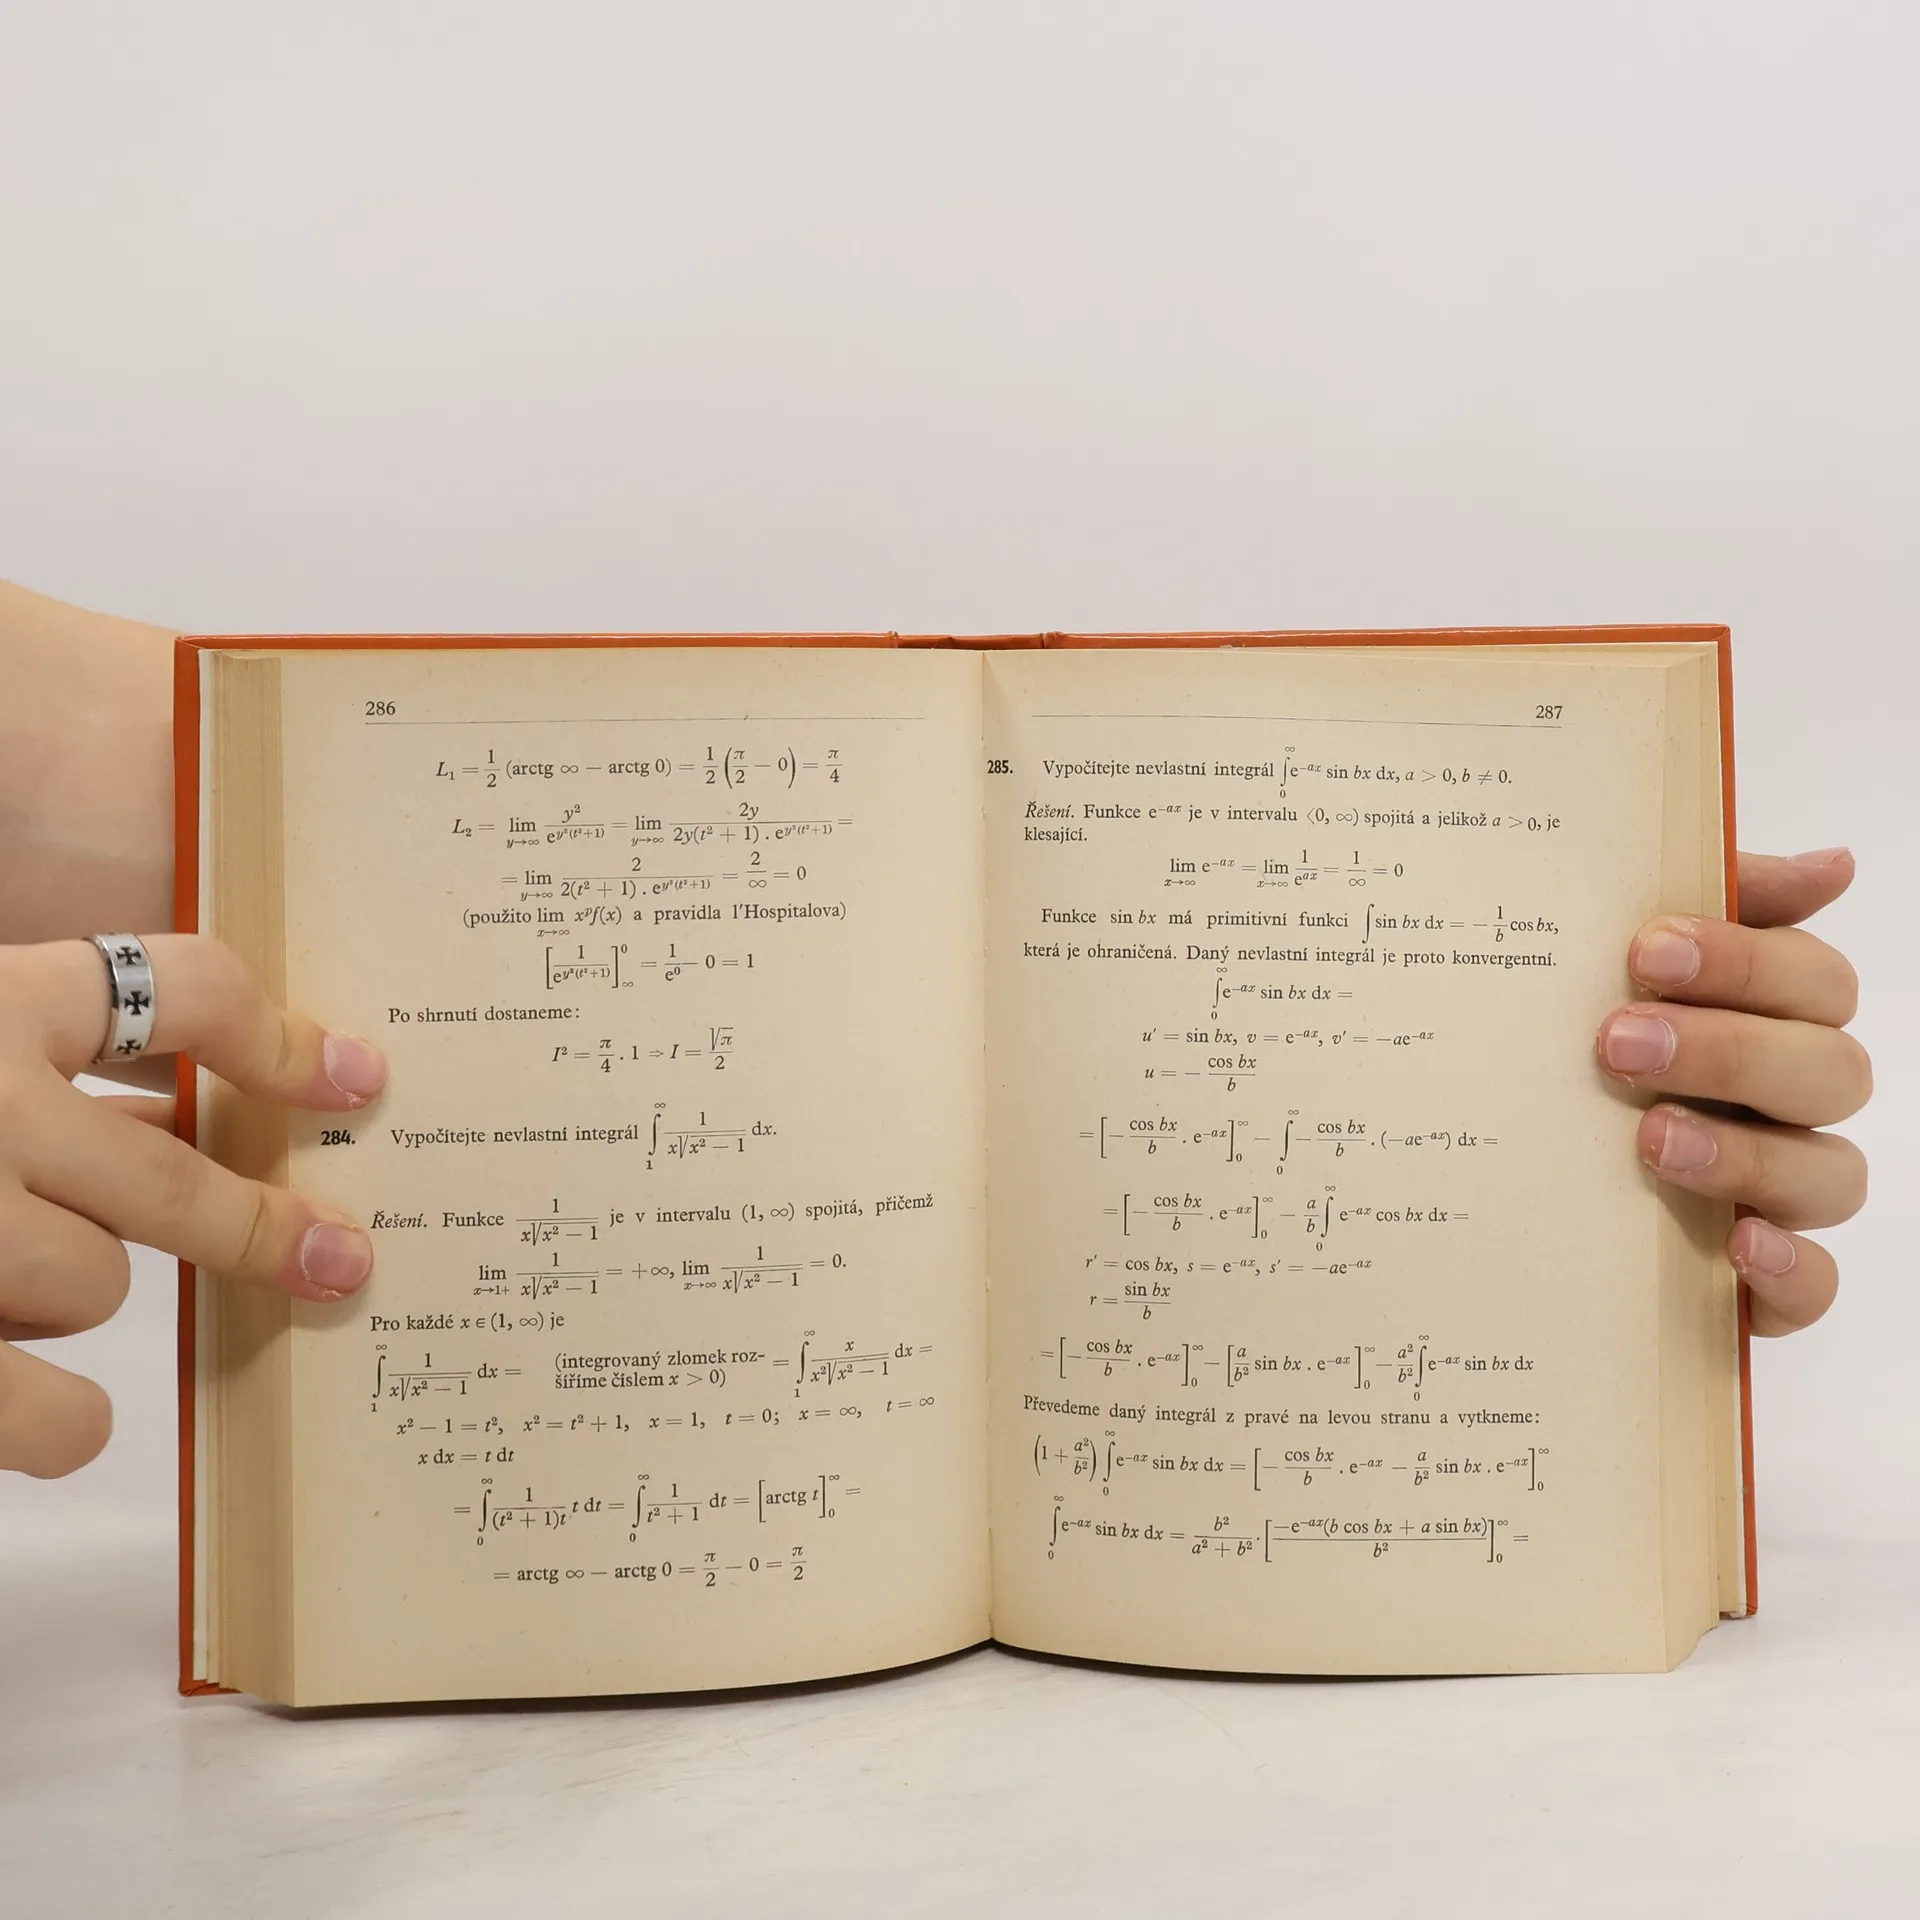 286
L₁ = 1/2 (arctg ∞ − arctg 0) = 1/2 (π/2 − 0) = π/4
L₂ = lim_{y→∞} y²/e^{y²(t²+1)} = lim_{y→∞} 2y/(2y(t² + 1) . e^{y²(t²+1)}) =
= lim_{y→∞} 2/(2(t² + 1) . e^{y²(t²+1)}) = 2/∞ = 0
(použito lim_{x→∞} xᵖf(x) a pravidla l'Hospitalova)
[1/e^{y²(t²+1)}]_∞^0 = 1/e⁰ − 0 = 1
Po shrnutí dostaneme:
I² = π/4 . 1 ⇒ I = √π/2
284. Vypočítejte nevlastní integrál ∫_1^∞ 1/(x√(x² − 1)) dx.
Řešení. Funkce 1/(x√(x² − 1)) je v intervalu (1, ∞) spojitá, přičemž
lim_{x→1+} 1/(x√(x² − 1)) = +∞, lim_{x→∞} 1/(x√(x² − 1)) = 0.
Pro každé x ∈ (1, ∞) je
∫_1^∞ 1/(x√(x² − 1)) dx = (integrovaný zlomek roz-šíříme číslem x > 0) = ∫_1^∞ x/(x²√(x² − 1)) dx =
x² − 1 = t², x² = t² + 1, x = 1, t = 0; x = ∞, t = ∞
x dx = t dt
= ∫_0^∞ 1/((t² + 1)t) . t dt = ∫_0^∞ 1/(t² + 1) dt = [arctg t]_0^∞ =
= arctg ∞ − arctg 0 = π/2 − 0 = π/2
287
285. Vypočítejte nevlastní integrál ∫_0^∞ e^{−ax} sin bx dx, a > 0, b ≠ 0.
Řešení. Funkce e^{−ax} je v intervalu ⟨0, ∞) spojitá a jelikož a > 0, je
klesající.
lim_{x→∞} e^{−ax} = lim_{x→∞} 1/e^{ax} = 1/∞ = 0
Funkce sin bx má primitivní funkci ∫ sin bx dx = − 1/b cos bx,
která je ohraničená. Daný nevlastní integrál je proto konvergentní.
∫_0^∞ e^{−ax} sin bx dx =
u′ = sin bx, v = e^{−ax}, v′ = −ae^{−ax}
u = − cos bx/b
= [− cos bx/b . e^{−ax}]_0^∞ − ∫_0^∞ − cos bx/b . (−ae^{−ax}) dx =
= [− cos bx/b . e^{−ax}]_0^∞ − a/b ∫_0^∞ e^{−ax} cos bx dx =
r′ = cos bx, s = e^{−ax}, s′ = −ae^{−ax}
r = sin bx/b
= [− cos bx/b . e^{−ax}]_0^∞ − [a/b² sin bx . e^{−ax}]_0^∞ − a²/b² ∫_0^∞ e^{−ax} sin bx dx
Převedeme daný integrál z pravé na levou stranu a vytkneme:
(1 + a²/b²) ∫_0^∞ e^{−ax} sin bx dx = [− cos bx/b . e^{−ax} − a/b² sin bx . e^{−ax}]_0^∞
∫_0^∞ e^{−ax} sin bx dx = b²/(a² + b²) . [−e^{−ax}(b cos bx + a sin bx)/b²]_0^∞ =